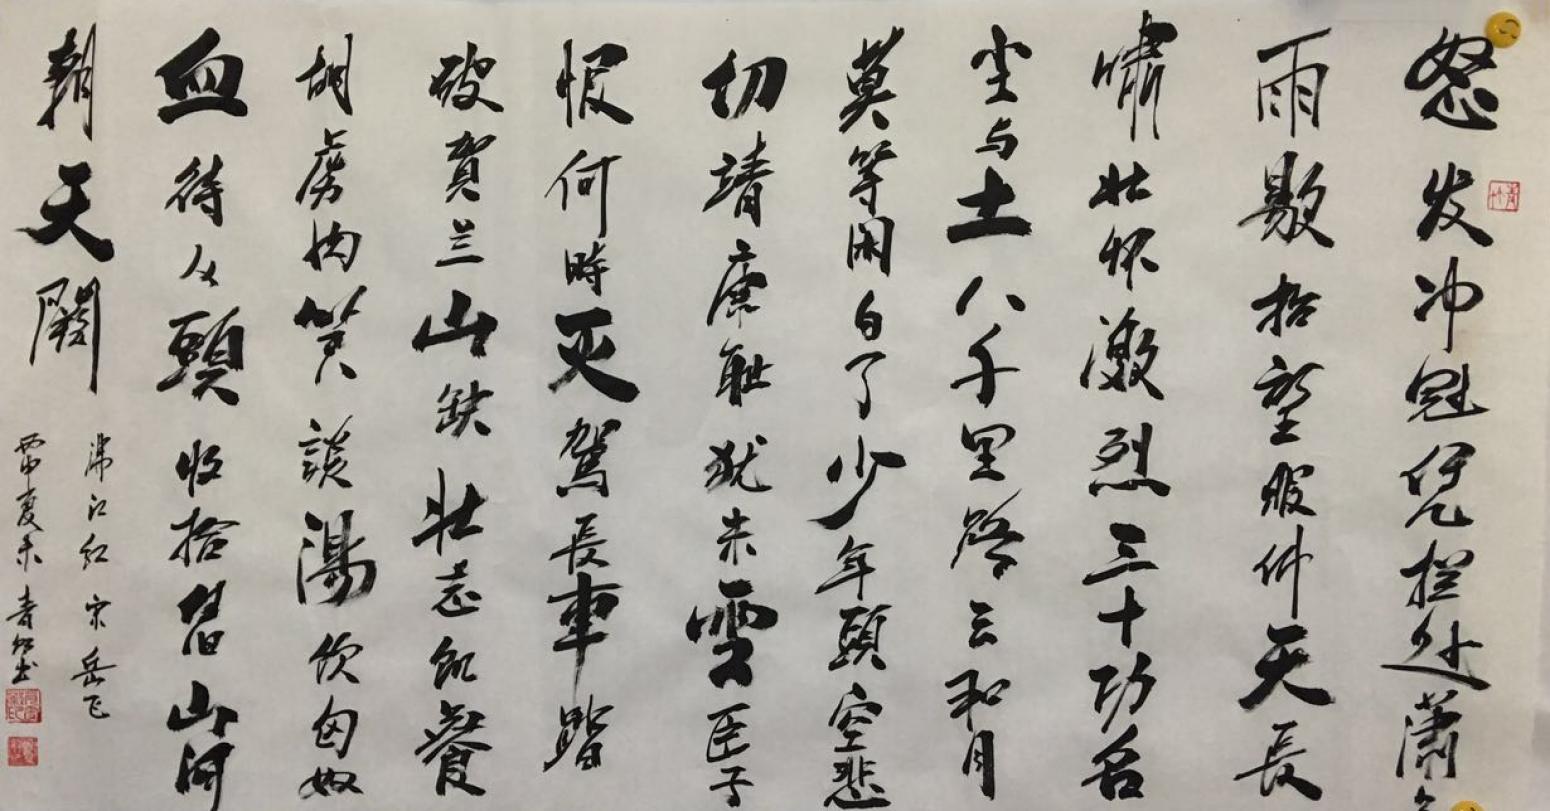 怒发冲冠凭栏处潇
雨歇抬望眼仰天長
嘯壮怀激烈三十功名
尘与土八千里路云和月
莫等闲白了少年頭空悲
切靖康耻犹未雪臣子
恨何時灭駕長車踏
破賀兰山缺壮志飢餐
胡虏肉笑談渴饮匈奴
血待从頭收拾舊山河
朝天闕
满江红 宋 岳飞
丙申夏末 青竹书
青竹